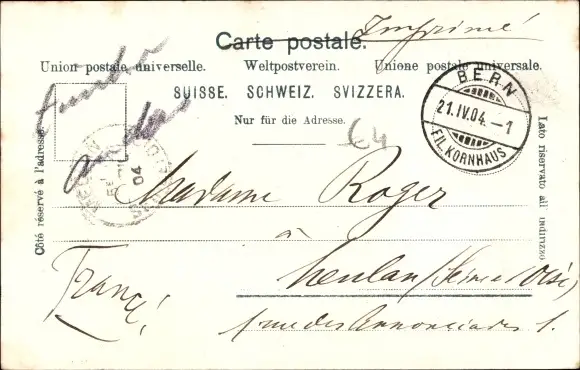 Imprimé
Carte postale.
Union postale universelle. Weltpostverein. Unione postale universale.
SUISSE. SCHWEIZ. SVIZZERA.
Nur für die Adresse.
Côté réservé à l'adresse.
Lato riservato all' indirizzo
BERN
21.IV.04.-1
FIL. KORNHAUS
64
timbre
au dos
04
Madame Roger
à
Meulan (Seine & Oise)
1 rue des Annonciades 1.
France